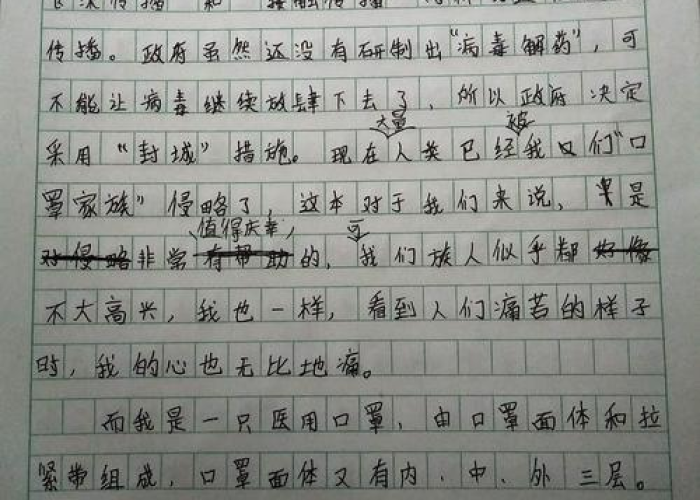 飞沫传播"和"接触传播"
传播。政府虽然还没有研制出"病毒解药"，可
不能让病毒继续放肆下去了，所以政府决定
大量 被
采用"封城"措施。现在人类已经我们"口
罩家族"侵略了，这本对于我们来说，是
值得庆幸， 可
对侵略非常有帮助的，我们族人似乎都好像
不大高兴，我也一样，看到人们痛苦的样子
时，我的心也无比地痛。
而我是一只医用口罩，由口罩面体和拉
紧带组成，口罩面体又有内、中、外三层。